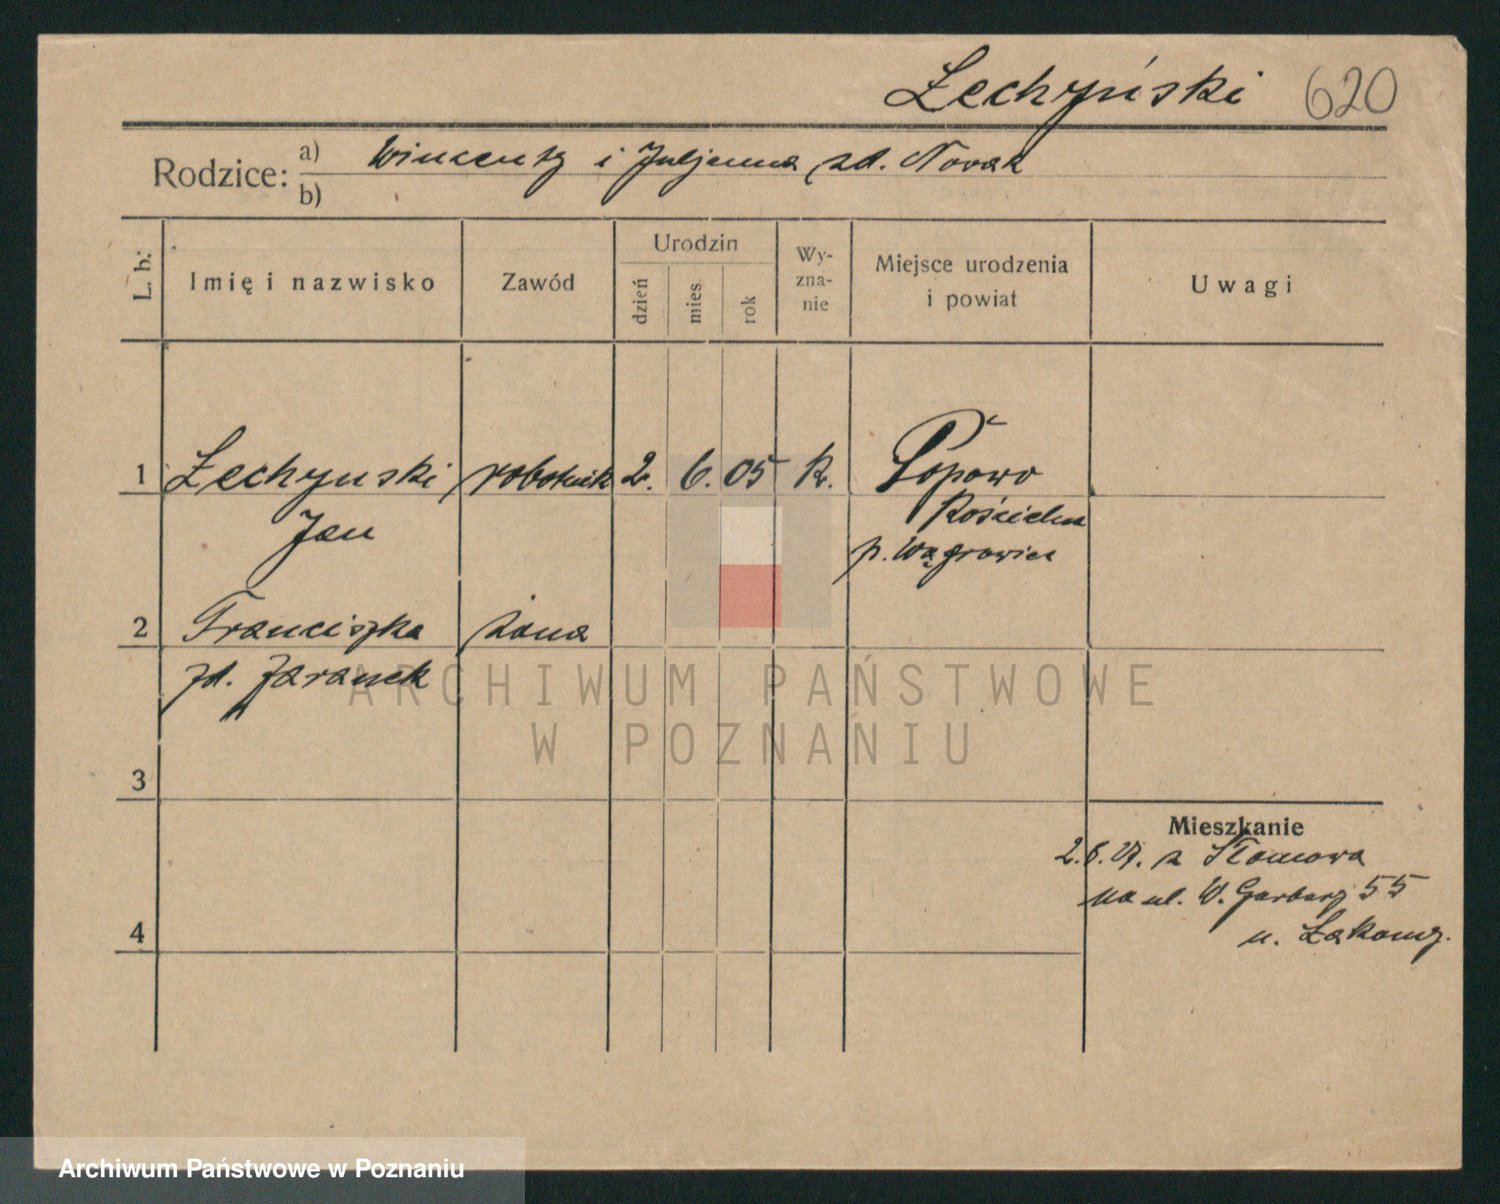 Lechyński 620
Rodzice: a) Wincenty i Juljanna zd. Nowak
b)
L. b. Imię i nazwisko Zawód Urodzin dzień mies. rok Wyznanie Miejsce urodzenia i powiat Uwagi
1 Lechynski robotnik 2. 6. 05 k. Popowo
Jan Kościelne
p. Wągrowiec
2 Franciszka żona
zd.
ARCHIWUM PAŃSTWOWE
W POZNANIU
3
Mieszkanie
2.6. z Słomowa
na ul. W. Garbary 55
4
u. Łakomy.
Archiwum Państwowe w Poznaniu